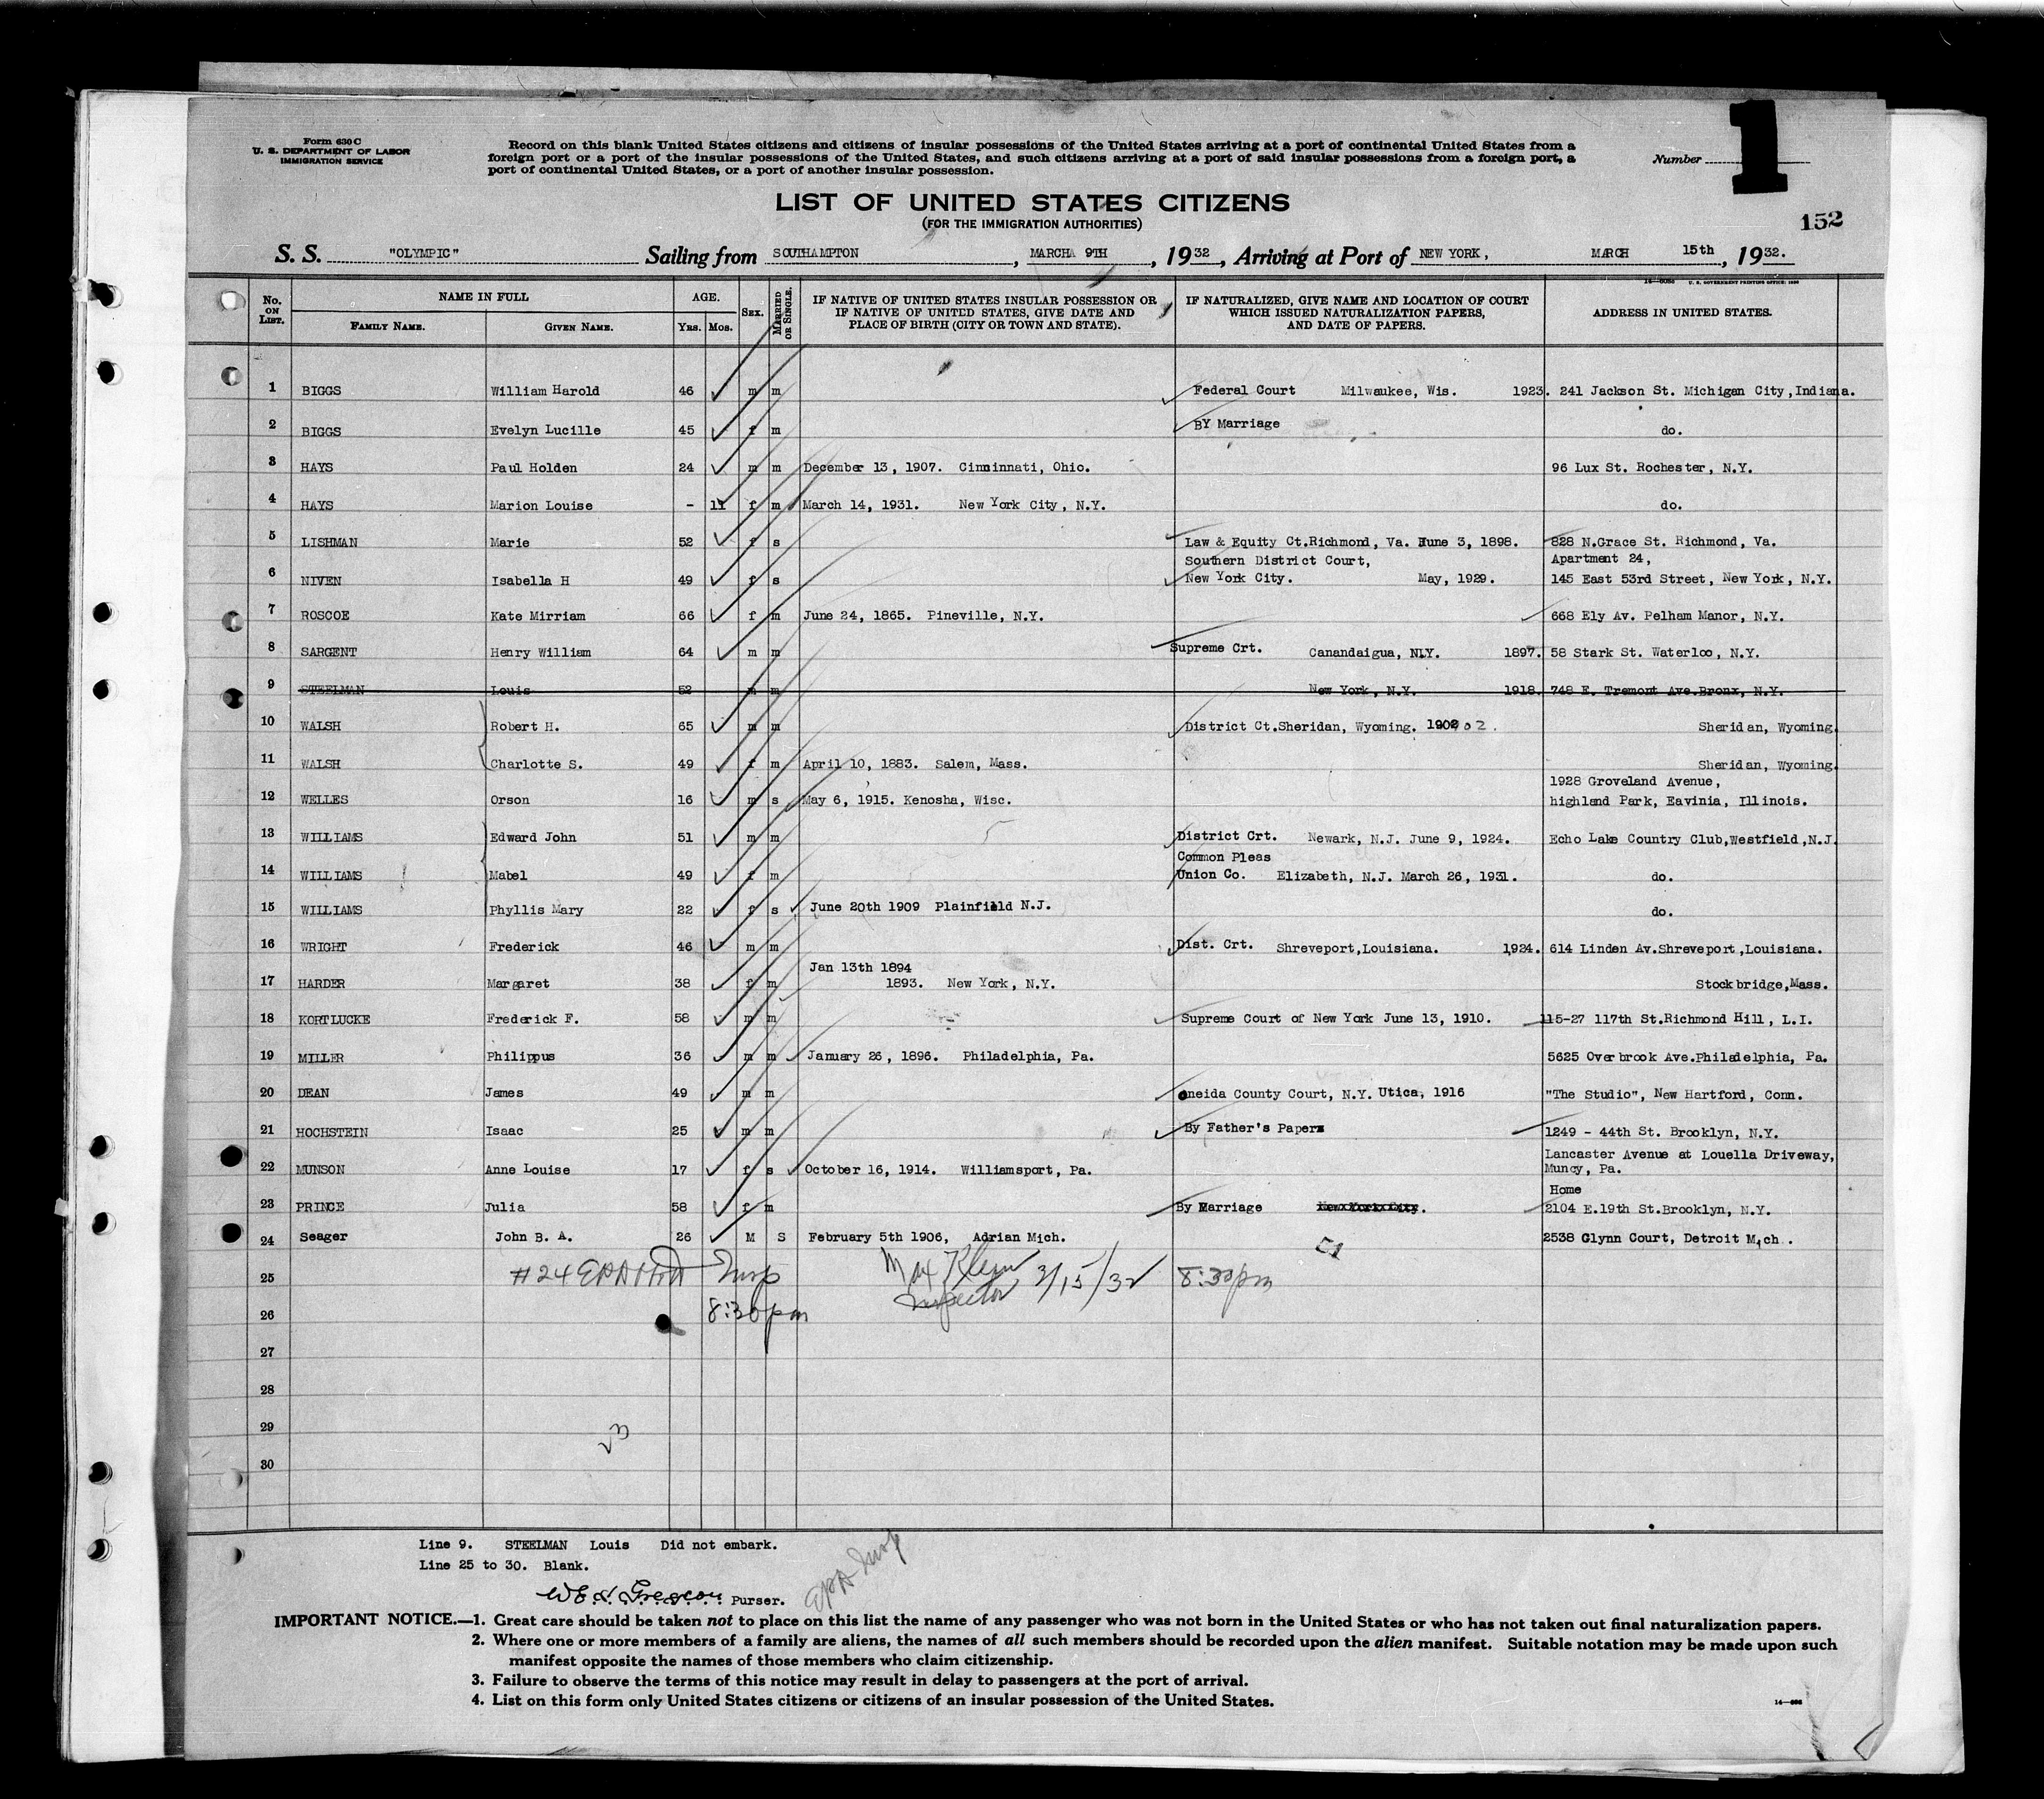 Form 630 C
U. S. DEPARTMENT OF LABOR
IMMIGRATION SERVICE
Record on this blank United States citizens and citizens of insular possessions of the United States arriving at a port of continental United States from a
foreign port or a port of the insular possessions of the United States, and such citizens arriving at a port of said insular possessions from a foreign port, a
port of continental United States, or a port of another insular possession.
Number 1
152
LIST OF UNITED STATES CITIZENS
(FOR THE IMMIGRATION AUTHORITIES)
S. S. "OLYMPIC" Sailing from SOUTHAMPTON, MARCHA 9TH, 1932, Arriving at Port of NEW YORK, MARCH 15th, 1932.
No. ON LIST. NAME IN FULL FAMILY NAME. GIVEN NAME. AGE. YRS. MOS. SEX. MARRIED OR SINGLE. IF NATIVE OF UNITED STATES INSULAR POSSESSION OR IF NATIVE OF UNITED STATES, GIVE DATE AND PLACE OF BIRTH (CITY OR TOWN AND STATE). IF NATURALIZED, GIVE NAME AND LOCATION OF COURT WHICH ISSUED NATURALIZATION PAPERS, AND DATE OF PAPERS. ADDRESS IN UNITED STATES.
1 BIGGS William Harold 46 m m Federal Court Milwaukee, Wis. 1923. 241 Jackson St. Michigan City, Indiana.
2 BIGGS Evelyn Lucille 45 f m BY Marriage do.
3 HAYS Paul Holden 24 m m December 13, 1907. Cincinnati, Ohio. 96 Lux St. Rochester, N.Y.
4 HAYS Marion Louise - 11 f m March 14, 1931. New York City, N.Y. do.
5 LISHMAN Marie 52 f s Law & Equity Ct.Richmond, Va. June 3, 1898. 828 N.Grace St. Richmond, Va.
Southern District Court, Apartment 24,
6 NIVEN Isabella H 49 f s New York City. May, 1929. 145 East 53rd Street, New York, N.Y.
7 ROSCOE Kate Mirriam 66 f m June 24, 1865. Pineville, N.Y. 668 Ely Av. Pelham Manor, N.Y.
8 SARGENT Henry William 64 m m Supreme Crt. Canandaigua, N.Y. 1897. 58 Stark St. Waterloo, N.Y.
9 STEELMAN Louis 52 m m New York, N.Y. 1918. 748 E. Tremont Ave.Bronx, N.Y.
10 WALSH Robert H. 65 m m District Ct.Sheridan, Wyoming. 1902 02. Sheridan, Wyoming.
11 WALSH Charlotte S. 49 f m April 10, 1883. Salem, Mass. Sheridan, Wyoming.
1928 Groveland Avenue,
12 WELLES Orson 16 m s May 6, 1915. Kenosha, Wisc. highland Park, Eavinia, Illinois.
13 WILLIAMS Edward John 51 m m District Crt. Newark, N.J. June 9, 1924. Echo Lake Country Club,Westfield,N.J.
Common Pleas
14 WILLIAMS Mabel 49 f m Union Co. Elizabeth, N.J. March 26, 1931. do.
15 WILLIAMS Phyllis Mary 22 f s June 20th 1909 Plainfield N.J. do.
16 WRIGHT Frederick 46 m m Dist. Crt. Shreveport,Louisiana. 1924. 614 Linden Av.Shreveport,Louisiana.
Jan 13th 1894
17 HARDER Margaret 38 f m 1893. New York, N.Y. Stockbridge,Mass.
18 KORTLUCKE Frederick F. 58 m m Supreme Court of New York June 13, 1910. 115-27 117th St.Richmond Hill, L.I.
19 MILLER Philippus 36 m m January 26, 1896. Philadelphia, Pa. 5625 Overbrook Ave.Philadelphia, Pa.
20 DEAN James 49 m m Oneida County Court, N.Y. Utica, 1916 "The Studio", New Hartford, Conn.
21 HOCHSTEIN Isaac 25 m m By Father's Papers 1249 - 44th St. Brooklyn, N.Y.
Lancaster Avenue at Louella Driveway,
22 MUNSON Anne Louise 17 f s October 16, 1914. Williamsport, Pa. Muncy, Pa.
Home
23 PRINCE Julia 58 f m By Marriage New York City. 2104 E.19th St.Brooklyn, N.Y.
24 Seager John B. A. 26 M S February 5th 1906, Adrian Mich. 2538 Glynn Court, Detroit Mich.
25 #24 Insp Max Klein 3/15/32 8:30pm
Inspector
26 8:30pm
27
28
29
23
30
Line 9. STEELMAN Louis Did not embark.
Line 25 to 30. Blank.
Purser.
IMPORTANT NOTICE.—1. Great care should be taken not to place on this list the name of any passenger who was not born in the United States or who has not taken out final naturalization papers.
2. Where one or more members of a family are aliens, the names of all such members should be recorded upon the alien manifest. Suitable notation may be made upon such
manifest opposite the names of those members who claim citizenship.
3. Failure to observe the terms of this notice may result in delay to passengers at the port of arrival.
4. List on this form only United States citizens or citizens of an insular possession of the United States.